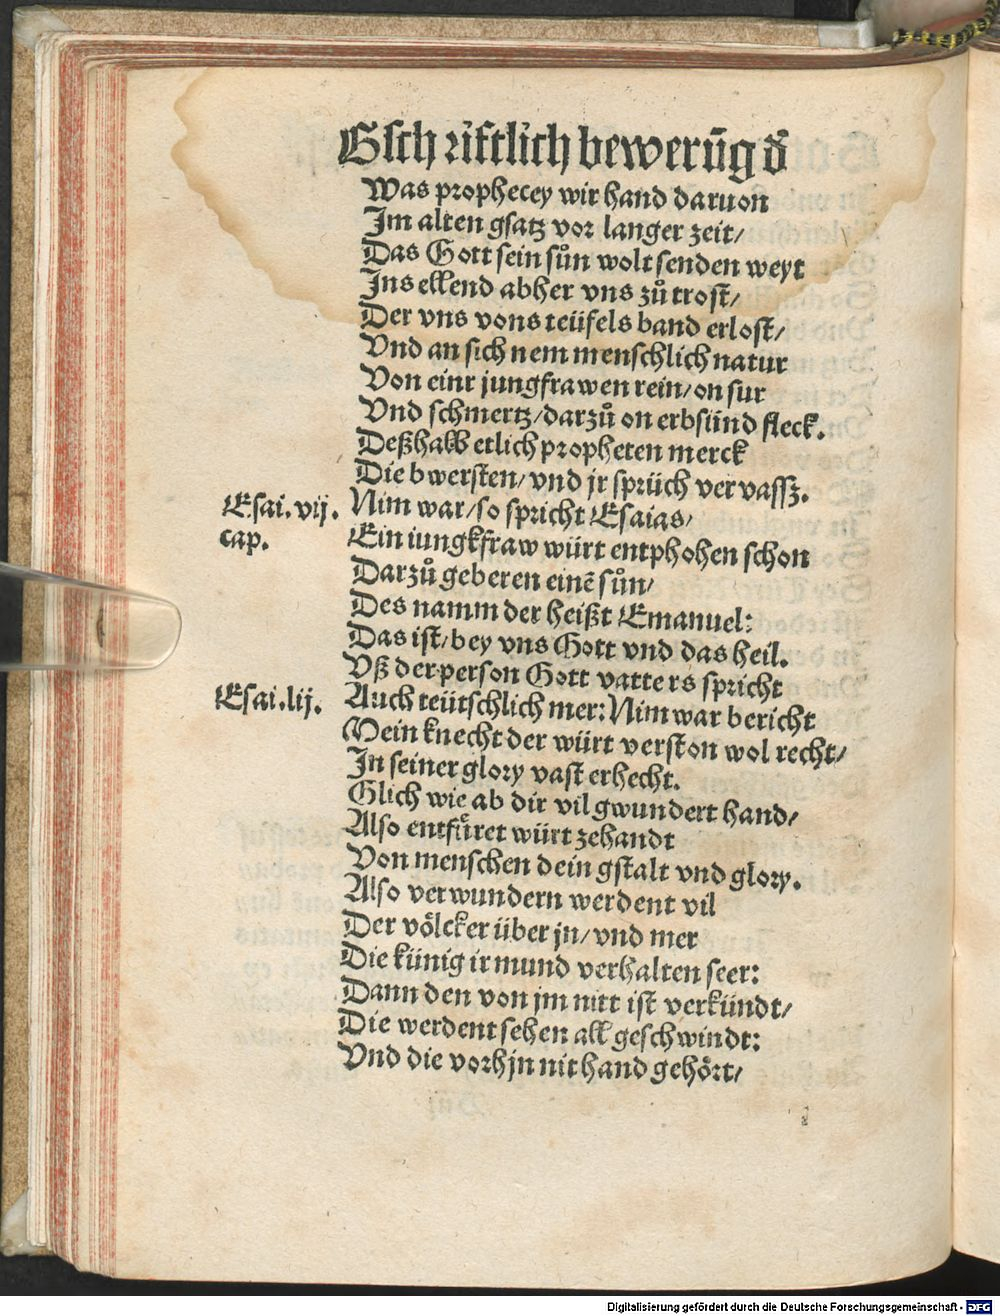 Gschrifftlich bewerūg d̕
Was prophecey wir hand daruon
Im alten gsatz vor langer zeit/
Das Gott sein sůn wolt senden weyt
Ins ellend abher vns zů trost/
Der vns vons teüfels band erlost/
Vnd an sich nem menschlich natur
Von einr jungfrawen rein/on sur
Vnd schmertz/darzů on erbsünd fleck.
Deßhalb etlich propheten merck
Die bwersten/vnd jr sprüch vervassz.
Esai. vij. Nim war/so spricht Esaias/
cap. Ein iungkfraw würt entphohen schon
Darzů geberen einē sůn/
Des namm der heißt Emanuel:
Das ist/bey vns Gott vnd das heil.
Vß der person Gott vatters spricht
Esai. lij. Auch teütschlich mer: Nim war bericht
Mein knecht der würt verston wol recht/
In seiner glory vast erhecht.
Glich wie ab dir vil gwundert hand/
Also entfüret würt zehandt
Von menschen dein gstalt vnd glory.
Also verwundern werdent vil
Der völcker über jn/vnd mer
Die künig ir mund verhalten seer:
Dann den von jm nitt ist verkündt/
Die werdent sehen all geschwindt:
Vnd die vorhjn nit hand gehört/
Digitalisierung gefördert durch die Deutsche Forschungsgemeinschaft - DFG